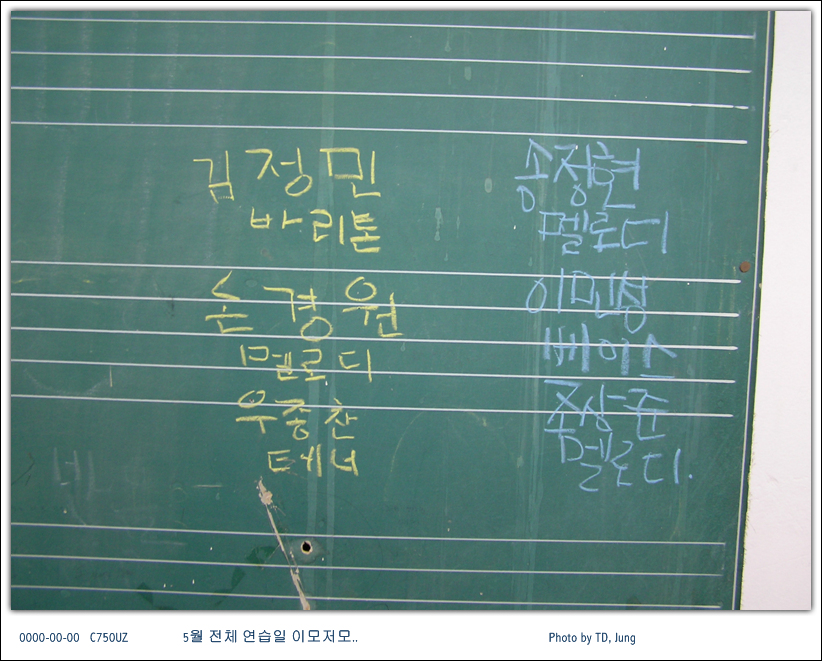 김정민
바리톤
손경원
멜로디
우종찬
테너
송정현
멜로디
이민성
베이스
조상준
멜로디.
0000-00-00 C750UZ 5월 전체 연습일 이모저모.. Photo by TD, Jung